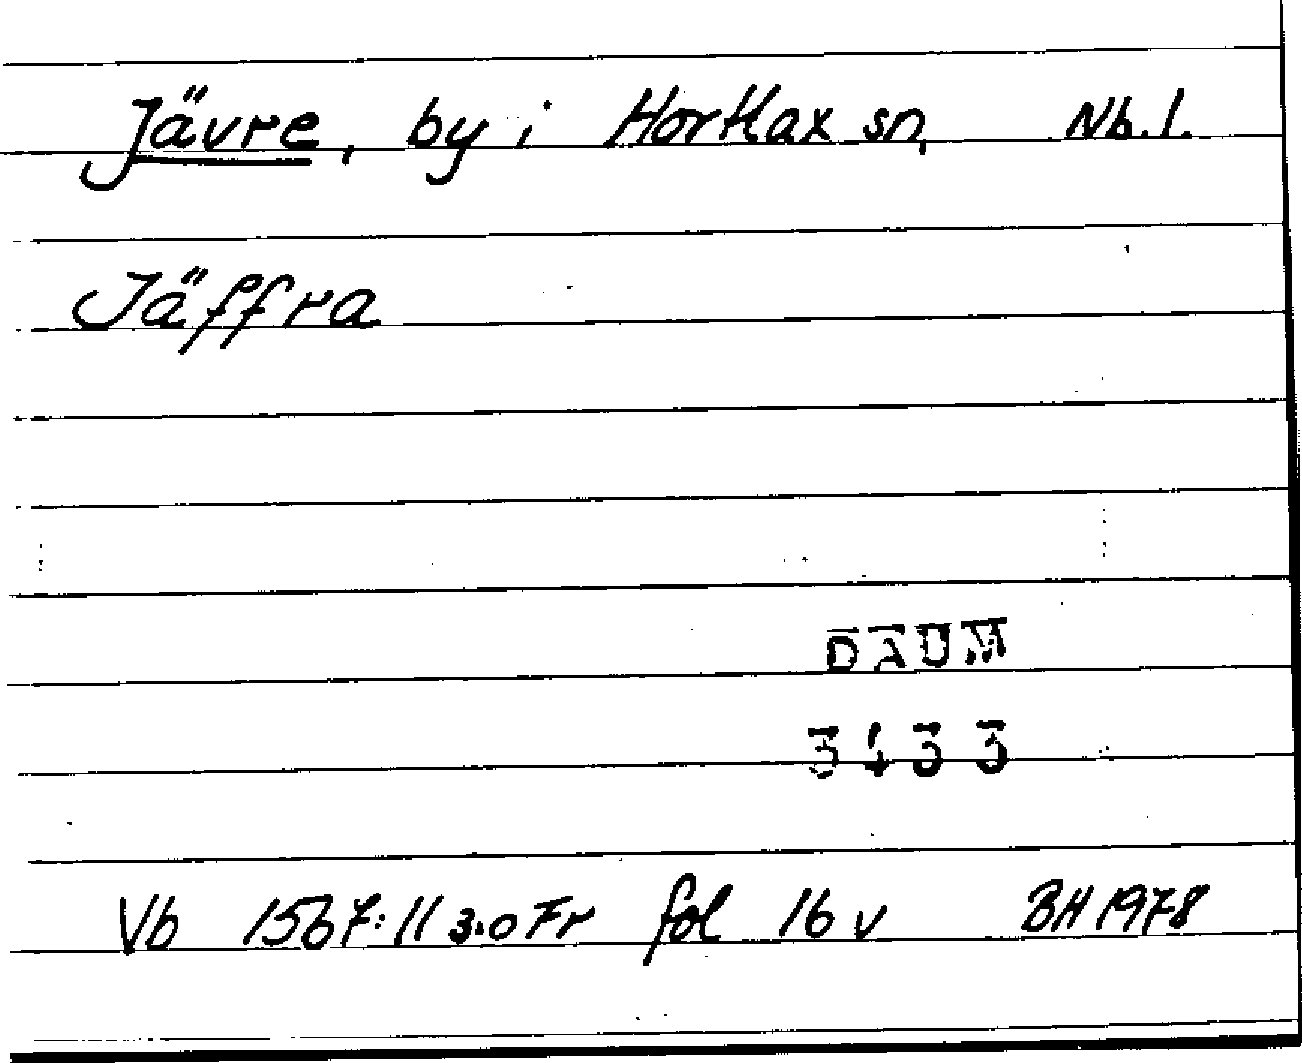 Jävre, by i Hortlax sn, Nb. l.
Jäffra
DAUM
3433
Vb 1567:11 3.0 Fr fol 16 v BH 1978